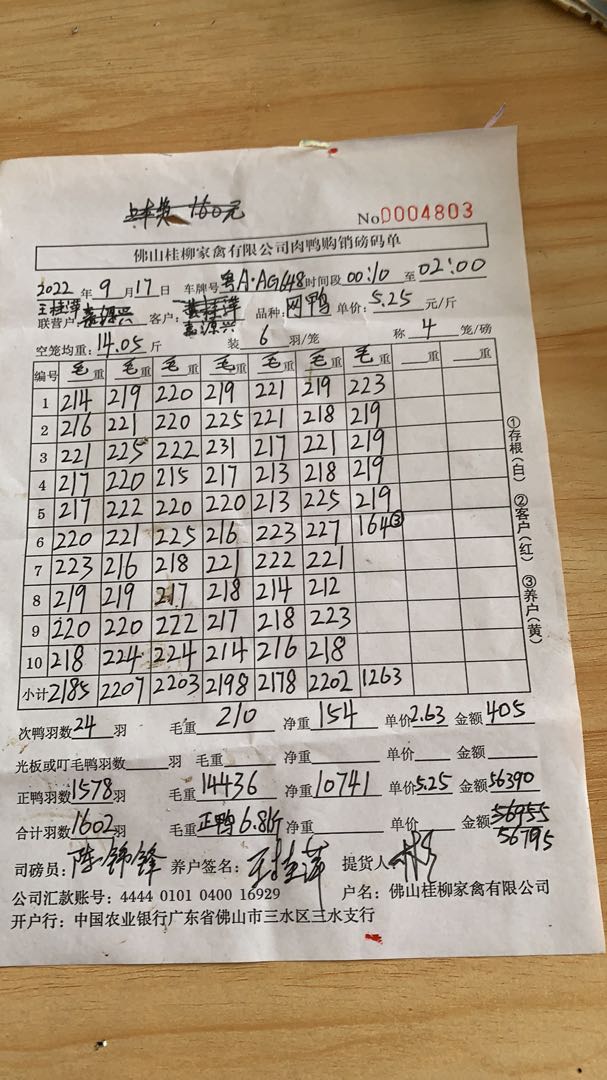 160元
No 0004803
佛山桂柳家禽有限公司肉鸭购销磅码单
2022 年 9 月 17 日 车牌号 粤A·AG648 时间段 00:10 至 02:00
联营户: 嘉源兴 客户: 嘉源兴 品种: 网鸭 单价: 5.25 元/斤
空笼均重: 14.05 斤 装 6 羽/笼 称 4 笼/磅
编号 毛重 毛重 毛重 毛重 毛重 毛重 毛重 重 重
1 214 219 220 219 221 219 223
2 216 221 220 225 221 218 219
3 221 225 222 231 217 221 219
4 217 220 215 217 213 218 219
5 217 222 220 220 213 225 219
6 220 221 225 216 223 227 164③
7 223 216 218 221 222 221
8 219 219 217 218 214 212
9 220 220 222 217 218 223
10 218 224 224 214 216 218
小计 2185 2207 2203 2198 2178 2202 1263
①存根(白) ②客户(红) ③养户(黄)
次鸭羽数 24 羽 毛重 210 净重 154 单价 2.63 金额 405
光板或叮毛鸭羽数 羽 毛重 净重 单价 金额
正鸭羽数 1578 羽 毛重 14436 净重 10741 单价 5.25 金额 56390
合计羽数 1602 羽 毛重 正鸭6.81斤 净重 单价 金额 56955
56795
司磅员: 陈锦锋 养户签名: 王桂萍 提货人
公司汇款账号: 4444 0101 0400 16929 户名: 佛山桂柳家禽有限公司
开户行: 中国农业银行广东省佛山市三水区三水支行